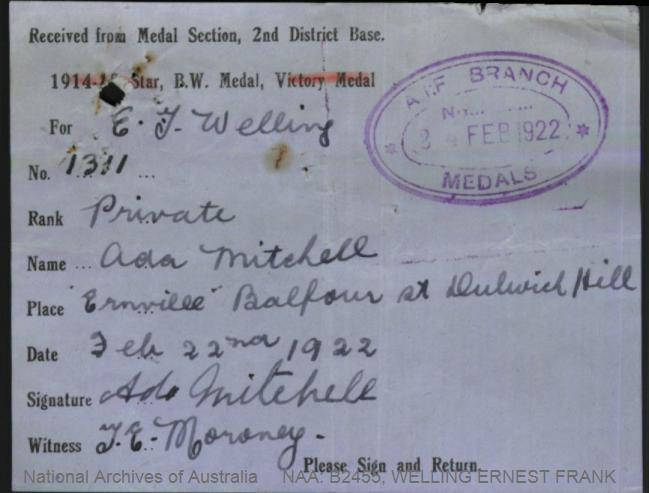 Received from Medal Section, 2nd District Base.
1914-15 Star, B.W. Medal, Victory Medal
For E. F. Welling
No. 1311
Rank Private
Name Ada Mitchell
Place "Ernville" Balfour st Dulwich Hill
Date Feb 22nd 1922
Signature Ada Mitchell
Witness T. E. Moroney.
Please Sign and Return.
A.I.F. BRANCH
No.
24 FEB 1922
MEDALS
National Archives of Australia NAA: B2455, WELLING ERNEST FRANK